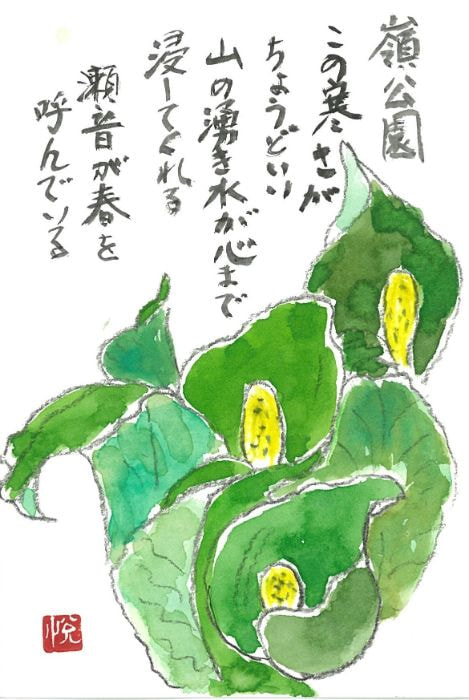 嶺公園
この寒さが
ちょうどいい
山の湧き水が心まで
浸してくれる
瀬音が春を
呼んでいる
悦